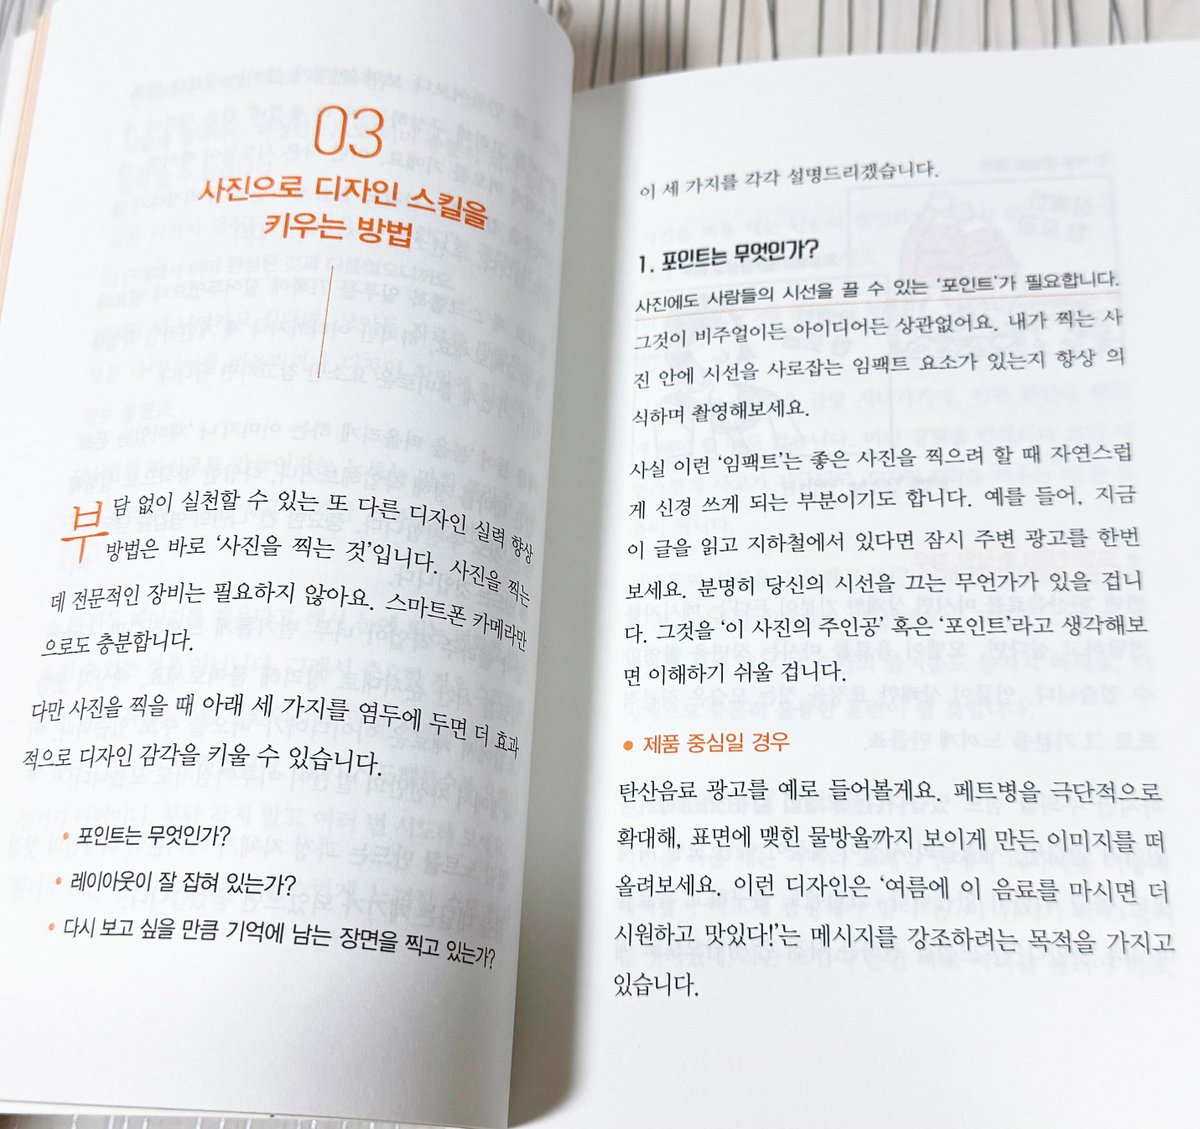 03
사진으로 디자인 스킬을
키우는 방법
부담 없이 실천할 수 있는 또 다른 디자인 실력 향상
방법은 바로 ‘사진을 찍는 것’입니다. 사진을 찍는
데 전문적인 장비는 필요하지 않아요. 스마트폰 카메라만
으로도 충분합니다.
다만 사진을 찍을 때 아래 세 가지를 염두에 두면 더 효과
적으로 디자인 감각을 키울 수 있습니다.
• 포인트는 무엇인가?
• 레이아웃이 잘 잡혀 있는가?
• 다시 보고 싶을 만큼 기억에 남는 장면을 찍고 있는가?
이 세 가지를 각각 설명드리겠습니다.
1. 포인트는 무엇인가?
사진에도 사람들의 시선을 끌 수 있는 ‘포인트’가 필요합니다.
그것이 비주얼이든 아이디어든 상관없어요. 내가 찍는 사
진 안에 시선을 사로잡는 임팩트 요소가 있는지 항상 의
식하며 촬영해보세요.
사실 이런 ‘임팩트’는 좋은 사진을 찍으려 할 때 자연스럽
게 신경 쓰게 되는 부분이기도 합니다. 예를 들어, 지금
이 글을 읽고 지하철에서 있다면 잠시 주변 광고를 한번
보세요. 분명히 당신의 시선을 끄는 무언가가 있을 겁니
다. 그것을 ‘이 사진의 주인공’ 혹은 ‘포인트’라고 생각해보
면 이해하기 쉬울 겁니다.
• 제품 중심일 경우
탄산음료 광고를 예로 들어볼게요. 페트병을 극단적으로
확대해, 표면에 맺힌 물방울까지 보이게 만든 이미지를 떠
올려보세요. 이런 디자인은 ‘여름에 이 음료를 마시면 더
시원하고 맛있다!’는 메시지를 강조하려는 목적을 가지고
있습니다.